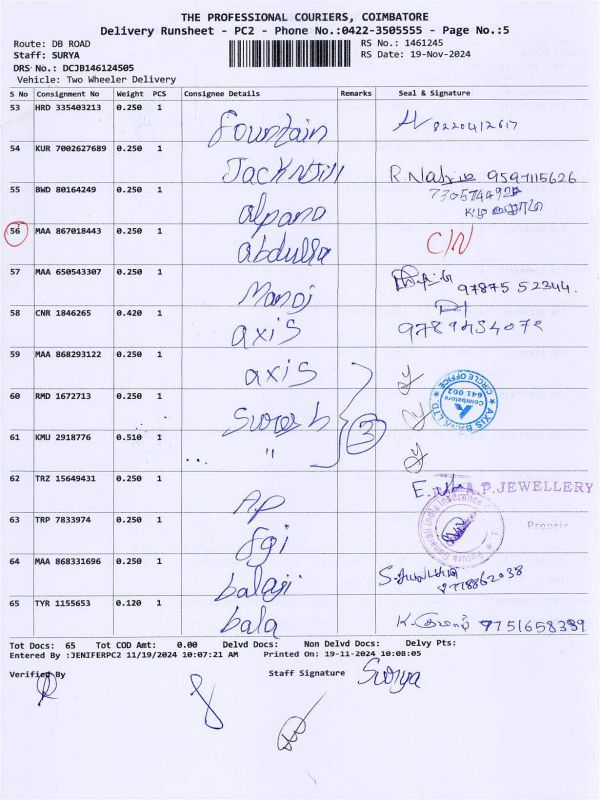 THE PROFESSIONAL COURIERS, COIMBATORE
Delivery Runsheet - PC2 - Phone No.:0422-3505555 - Page No.:5
Route: DB ROAD RS No.: 1461245
Staff: SURYA RS Date: 19-Nov-2024
DRS No.: DCJB146124505
Vehicle: Two Wheeler Delivery
S No Consignment No Weight PCS Consignee Details Remarks Seal & Signature
53 HRD 335403213 0.250 1 Fountain 8220412617
54 KUR 7002627689 0.250 1 Jack N Jill 9597115626
55 BWD 80164249 0.250 1 alpano
56 MAA 867018443 0.250 1 abdulla C/N
57 MAA 650543307 0.250 1 Manoj 97875 52344.
58 CNR 1846265 0.420 1 axis
59 MAA 868293122 0.250 1 axis
60 RMD 1672713 0.250 1 Suresh 3
61 KMU 2918776 0.510 1 "
AXIS BANK LTD
CIRCLE OFFICE
Coimbatore
641 002
62 TRZ 15649431 0.250 1 AP A.P.JEWELLERY
63 TRP 7833974 0.250 1 fgi
64 MAA 868331696 0.250 1 balaji
65 TYR 1155653 0.120 1 bala 7751658389
Tot Docs: 65 Tot COD Amt: 0.00 Delvd Docs: Non Delvd Docs: Delvy Pts:
Entered By :JENIFERPC2 11/19/2024 10:07:21 AM Printed On: 19-11-2024 10:08:05
Verified By Staff Signature Surya